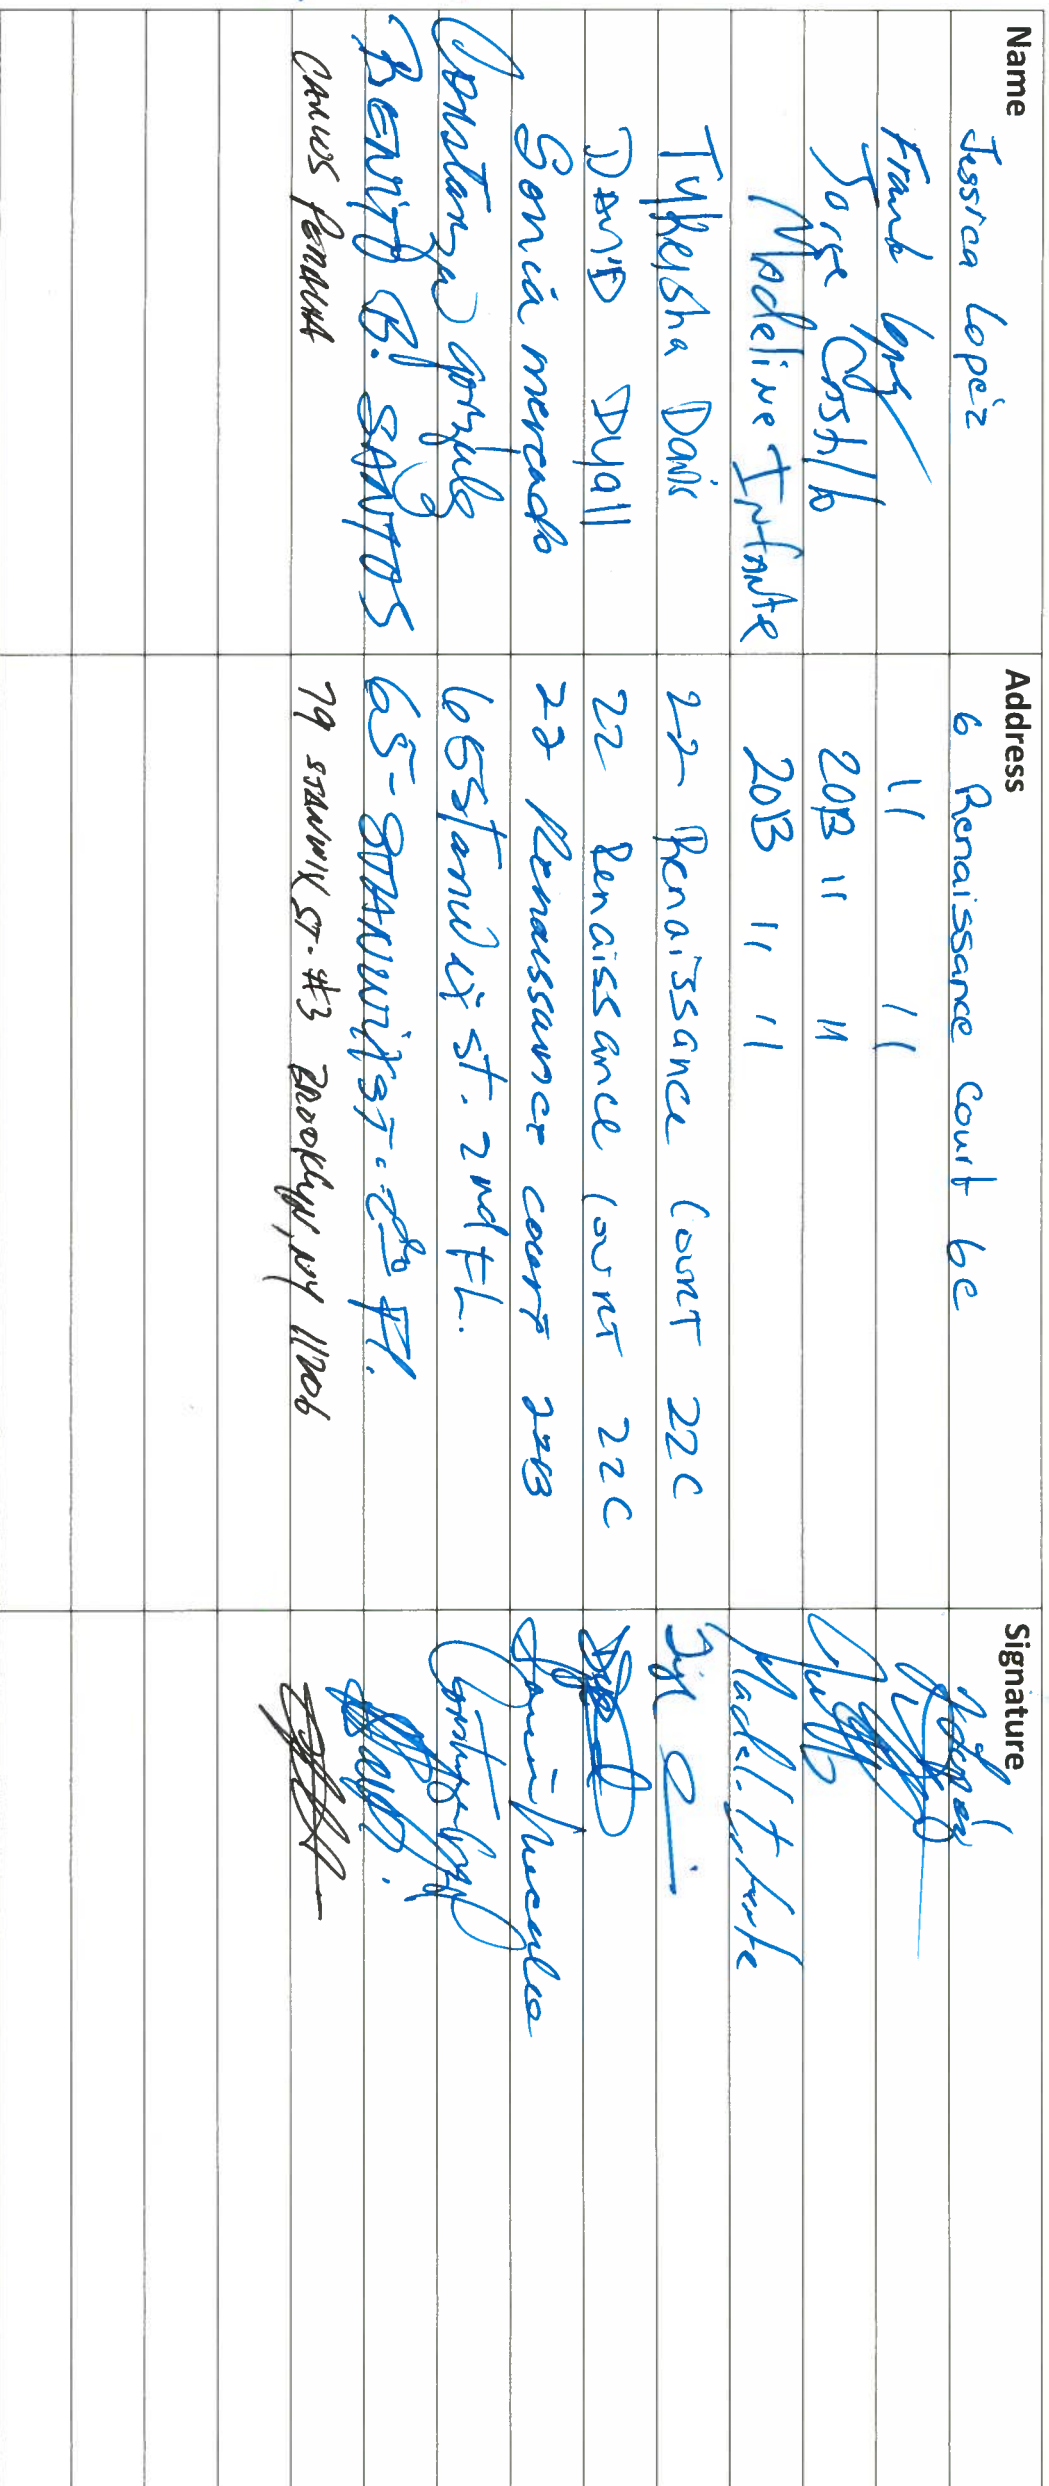 Name Address Signature
Jessica Lopez 6 Renaissance Court 6C
Frank 11 11
Jorge Castillo 20B 11 11
Madeline Infante 20B 11 11 Madel. Infante
Tykeisha Davis 22 Renaissance Court 22C
DAVID Dyall 22 Renaissance Court 22C
Sonia mercado 22 Renaissance court 22B Sonia Mercado
Constanza 65 Stanwix st. 2nd FL.
BENITO B. SANTOS 65-STANWIX ST. 2ND Fl.
CARLOS PERALTA 79 STANWIX ST. #3 BROOKLYN, NY 11206